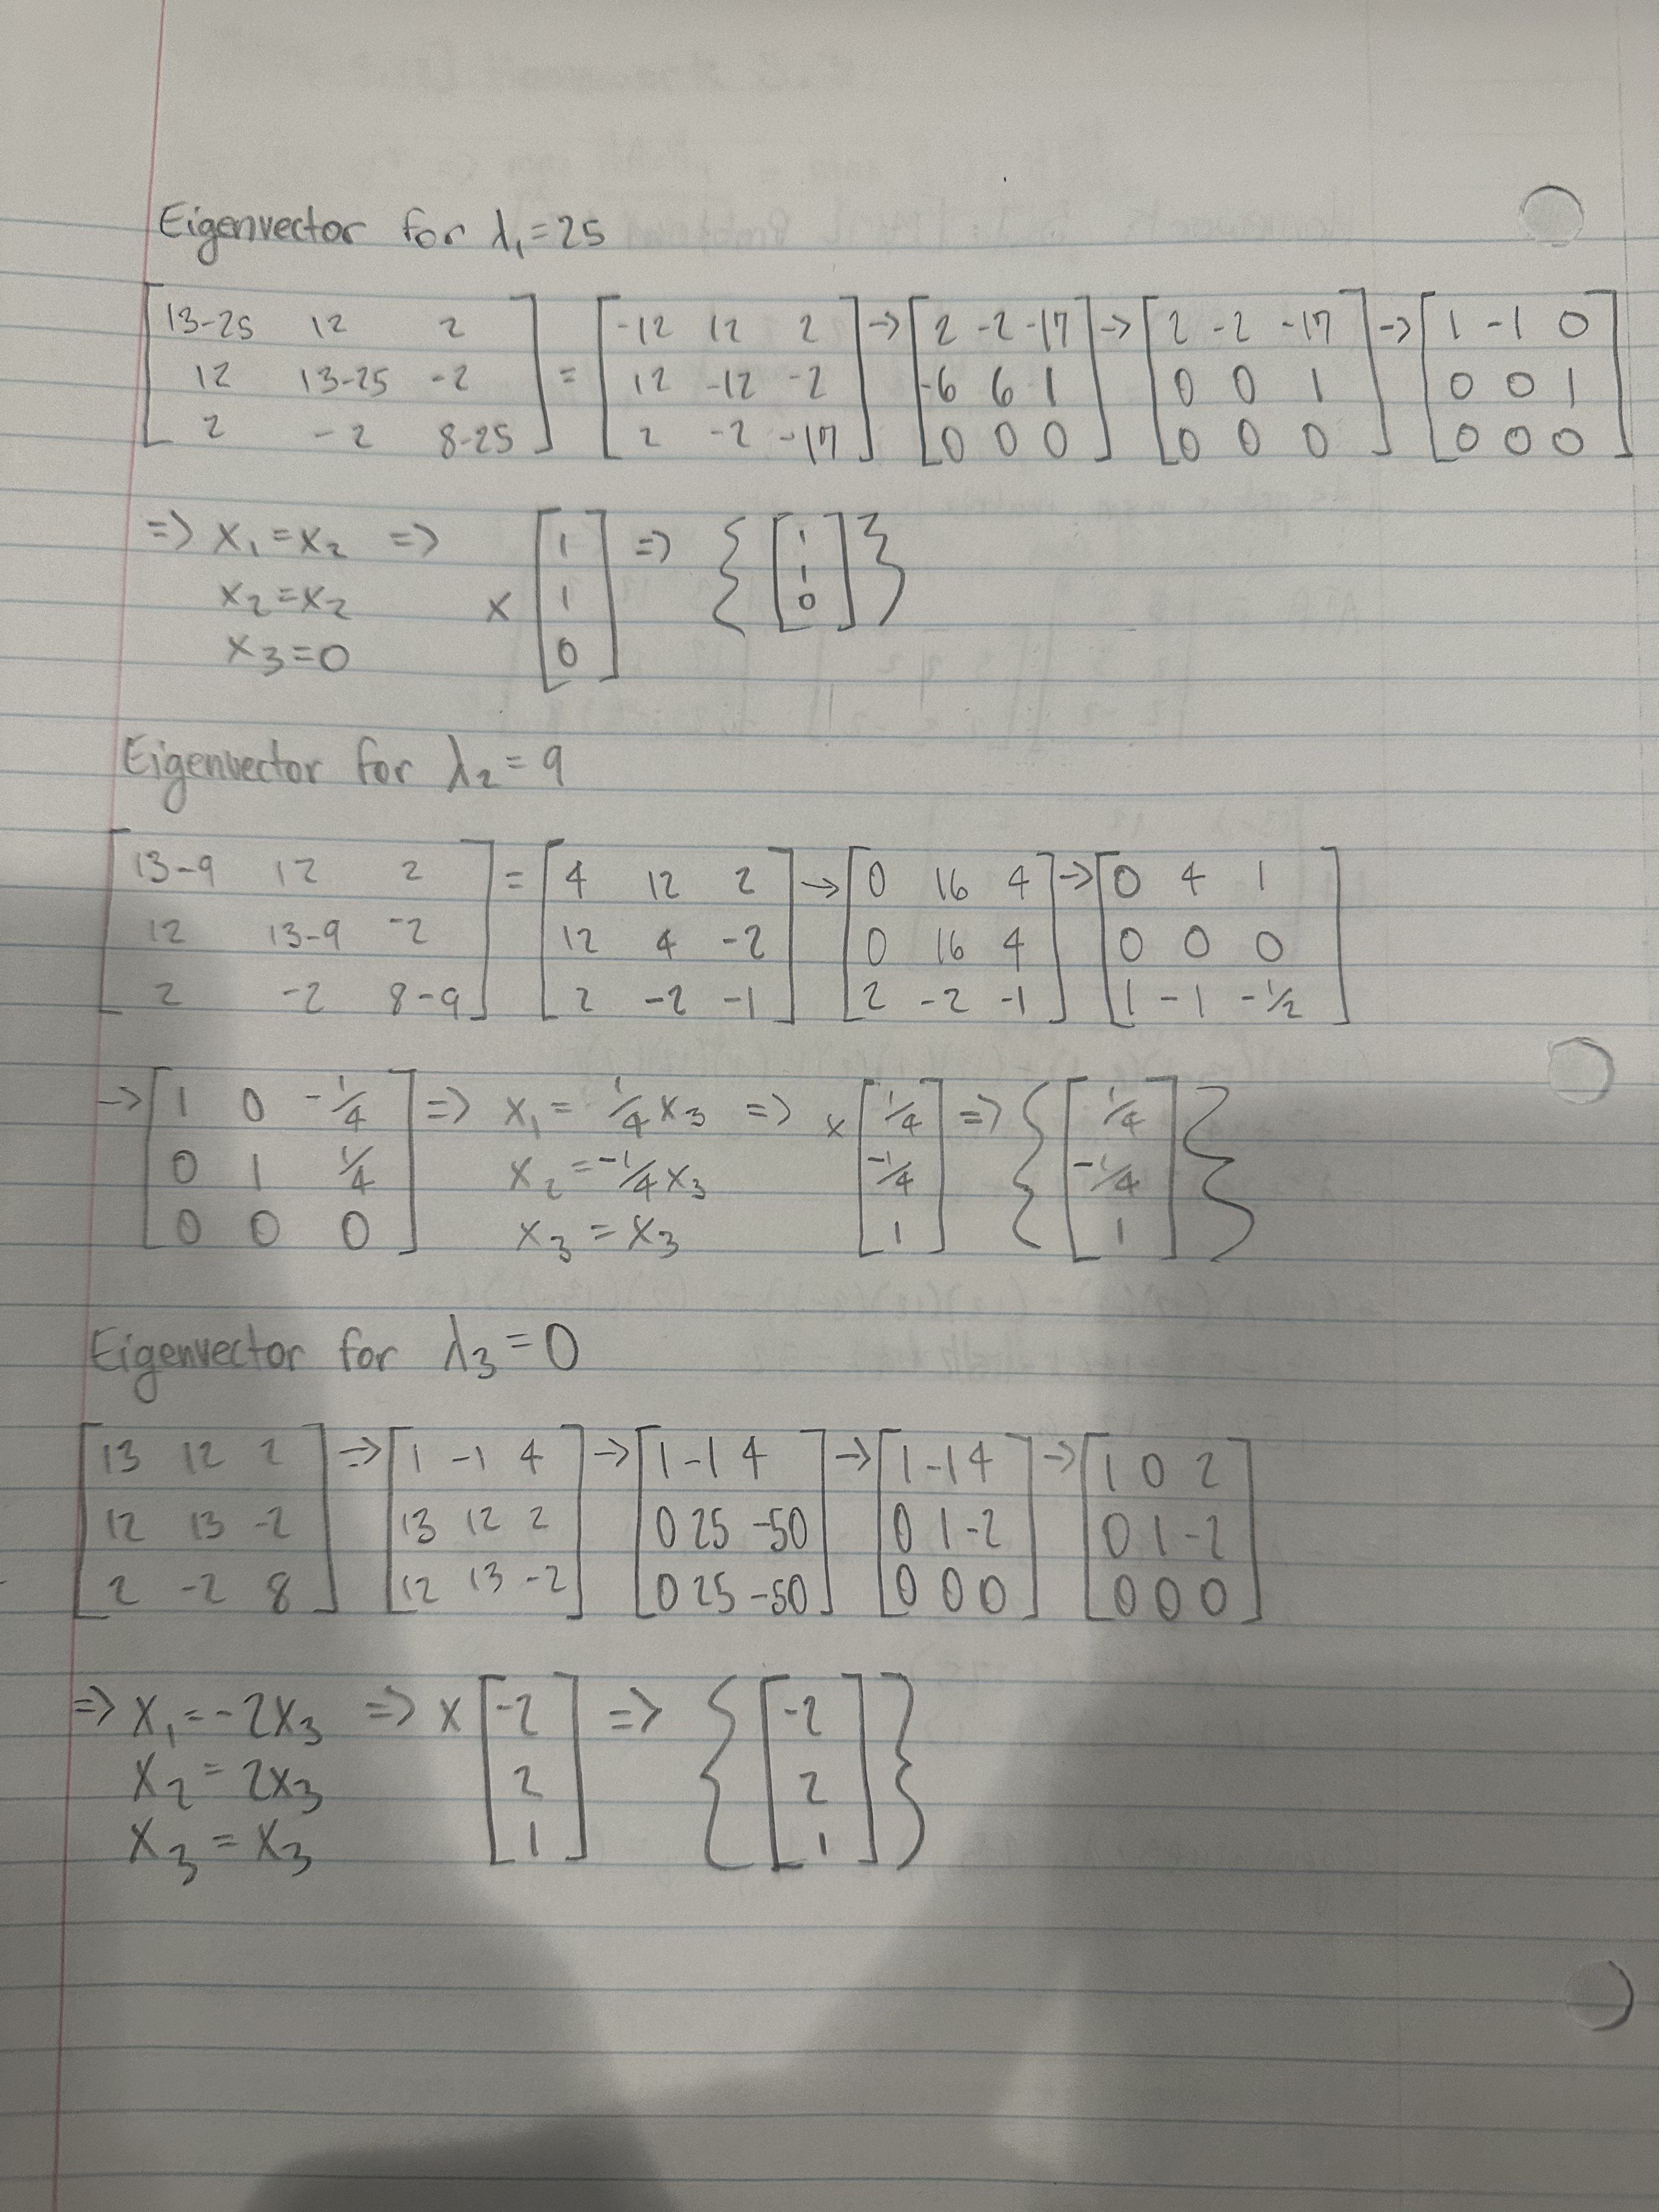 Eigenvector for λ₁=25
[13-25 12 2; 12 13-25 -2; 2 -2 8-25] = [-12 12 2; 12 -12 -2; 2 -2 -17] → [2 -2 -17; -6 6 1; 0 0 0] → [2 -2 -17; 0 0 1; 0 0 0] → [1 -1 0; 0 0 1; 0 0 0]
⇒ x₁=x₂ ⇒ x [1; 1; 0] ⇒ {[1; 1; 0]}
x₂=x₂
x₃=0
Eigenvector for λ₂=9
[13-9 12 2; 12 13-9 -2; 2 -2 8-9] = [4 12 2; 12 4 -2; 2 -2 -1] → [0 16 4; 0 16 4; 2 -2 -1] → [0 4 1; 0 0 0; 1 -1 -1/2]
→ [1 0 -1/4; 0 1 1/4; 0 0 0] ⇒ x₁ = 1/4 x₃ ⇒ x [1/4; -1/4; 1] ⇒ {[1/4; -1/4; 1]}
x₂ = -1/4 x₃
x₃ = x₃
Eigenvector for λ₃=0
[13 12 2; 12 13 -2; 2 -2 8] ⇒ [1 -1 4; 13 12 2; 12 13 -2] → [1 -1 4; 0 25 -50; 0 25 -50] → [1 -1 4; 0 1 -2; 0 0 0] → [1 0 2; 0 1 -2; 0 0 0]
⇒ x₁=-2x₃ ⇒ x [-2; 2; 1] ⇒ {[-2; 2; 1]}
x₂ = 2x₃
x₃ = x₃